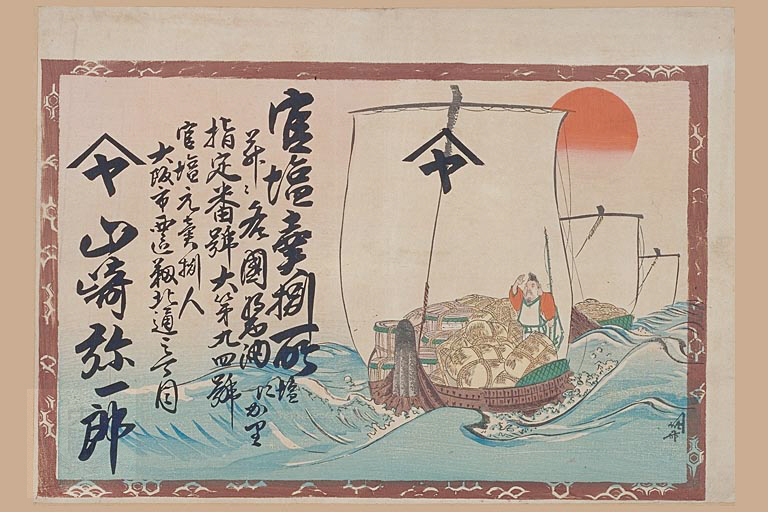 官塩賣捌所
并ニ各國醤油
塩
にかり
指定番號大第九四號
官塩元賣捌人
大阪市西區靱北通三丁目
ヤ 山崎弥一郎
ヤ